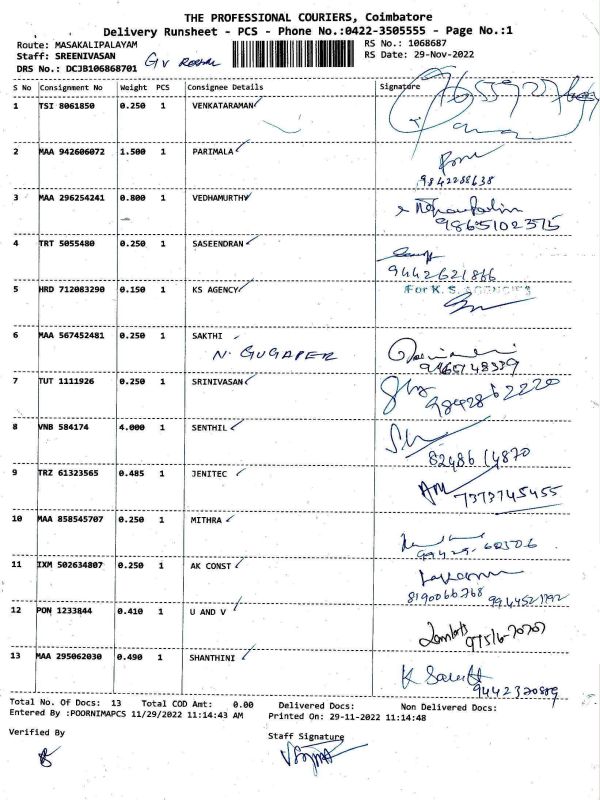 THE PROFESSIONAL COURIERS, Coimbatore
Delivery Runsheet - PCS - Phone No.:0422-3505555 - Page No.:1
Route: MASAKALIPALAYAM RS No.: 1068687
Staff: SREENIVASAN RS Date: 29-Nov-2022
DRS No.: DCJB106868701
S No Consignment No Weight PCS Consignee Details Signature
1 TSI 8061850 0.250 1 VENKATARAMAN
2 MAA 942606072 1.500 1 PARIMALA
9842288638
3 MAA 296254241 0.800 1 VEDHAMURTHY
9865102375
4 TRT 5055480 0.250 1 SASEENDRAN
9442621866
5 HRD 712083290 0.150 1 KS AGENCY
For K. S. AGENCIES
6 MAA 567452481 0.250 1 SAKTHI
N. GUGAPER
7 TUT 1111926 0.250 1 SRINIVASAN
9842862220
8 VNB 584174 4.000 1 SENTHIL
8248614870
9 TRZ 61323565 0.485 1 JENITEC
7373745455
10 MAA 858545707 0.250 1 MITHRA
99429-60506
11 IXM 502634807 0.250 1 AK CONST
8190066768 9944521792
12 PON 1233844 0.410 1 U AND V
13 MAA 295062030 0.490 1 SHANTHINI
9442320889
Total No. Of Docs: 13 Total COD Amt: 0.00 Delivered Docs: Non Delivered Docs:
Entered By :POORNIMAPCS 11/29/2022 11:14:43 AM Printed On: 29-11-2022 11:14:48
Verified By Staff Signature